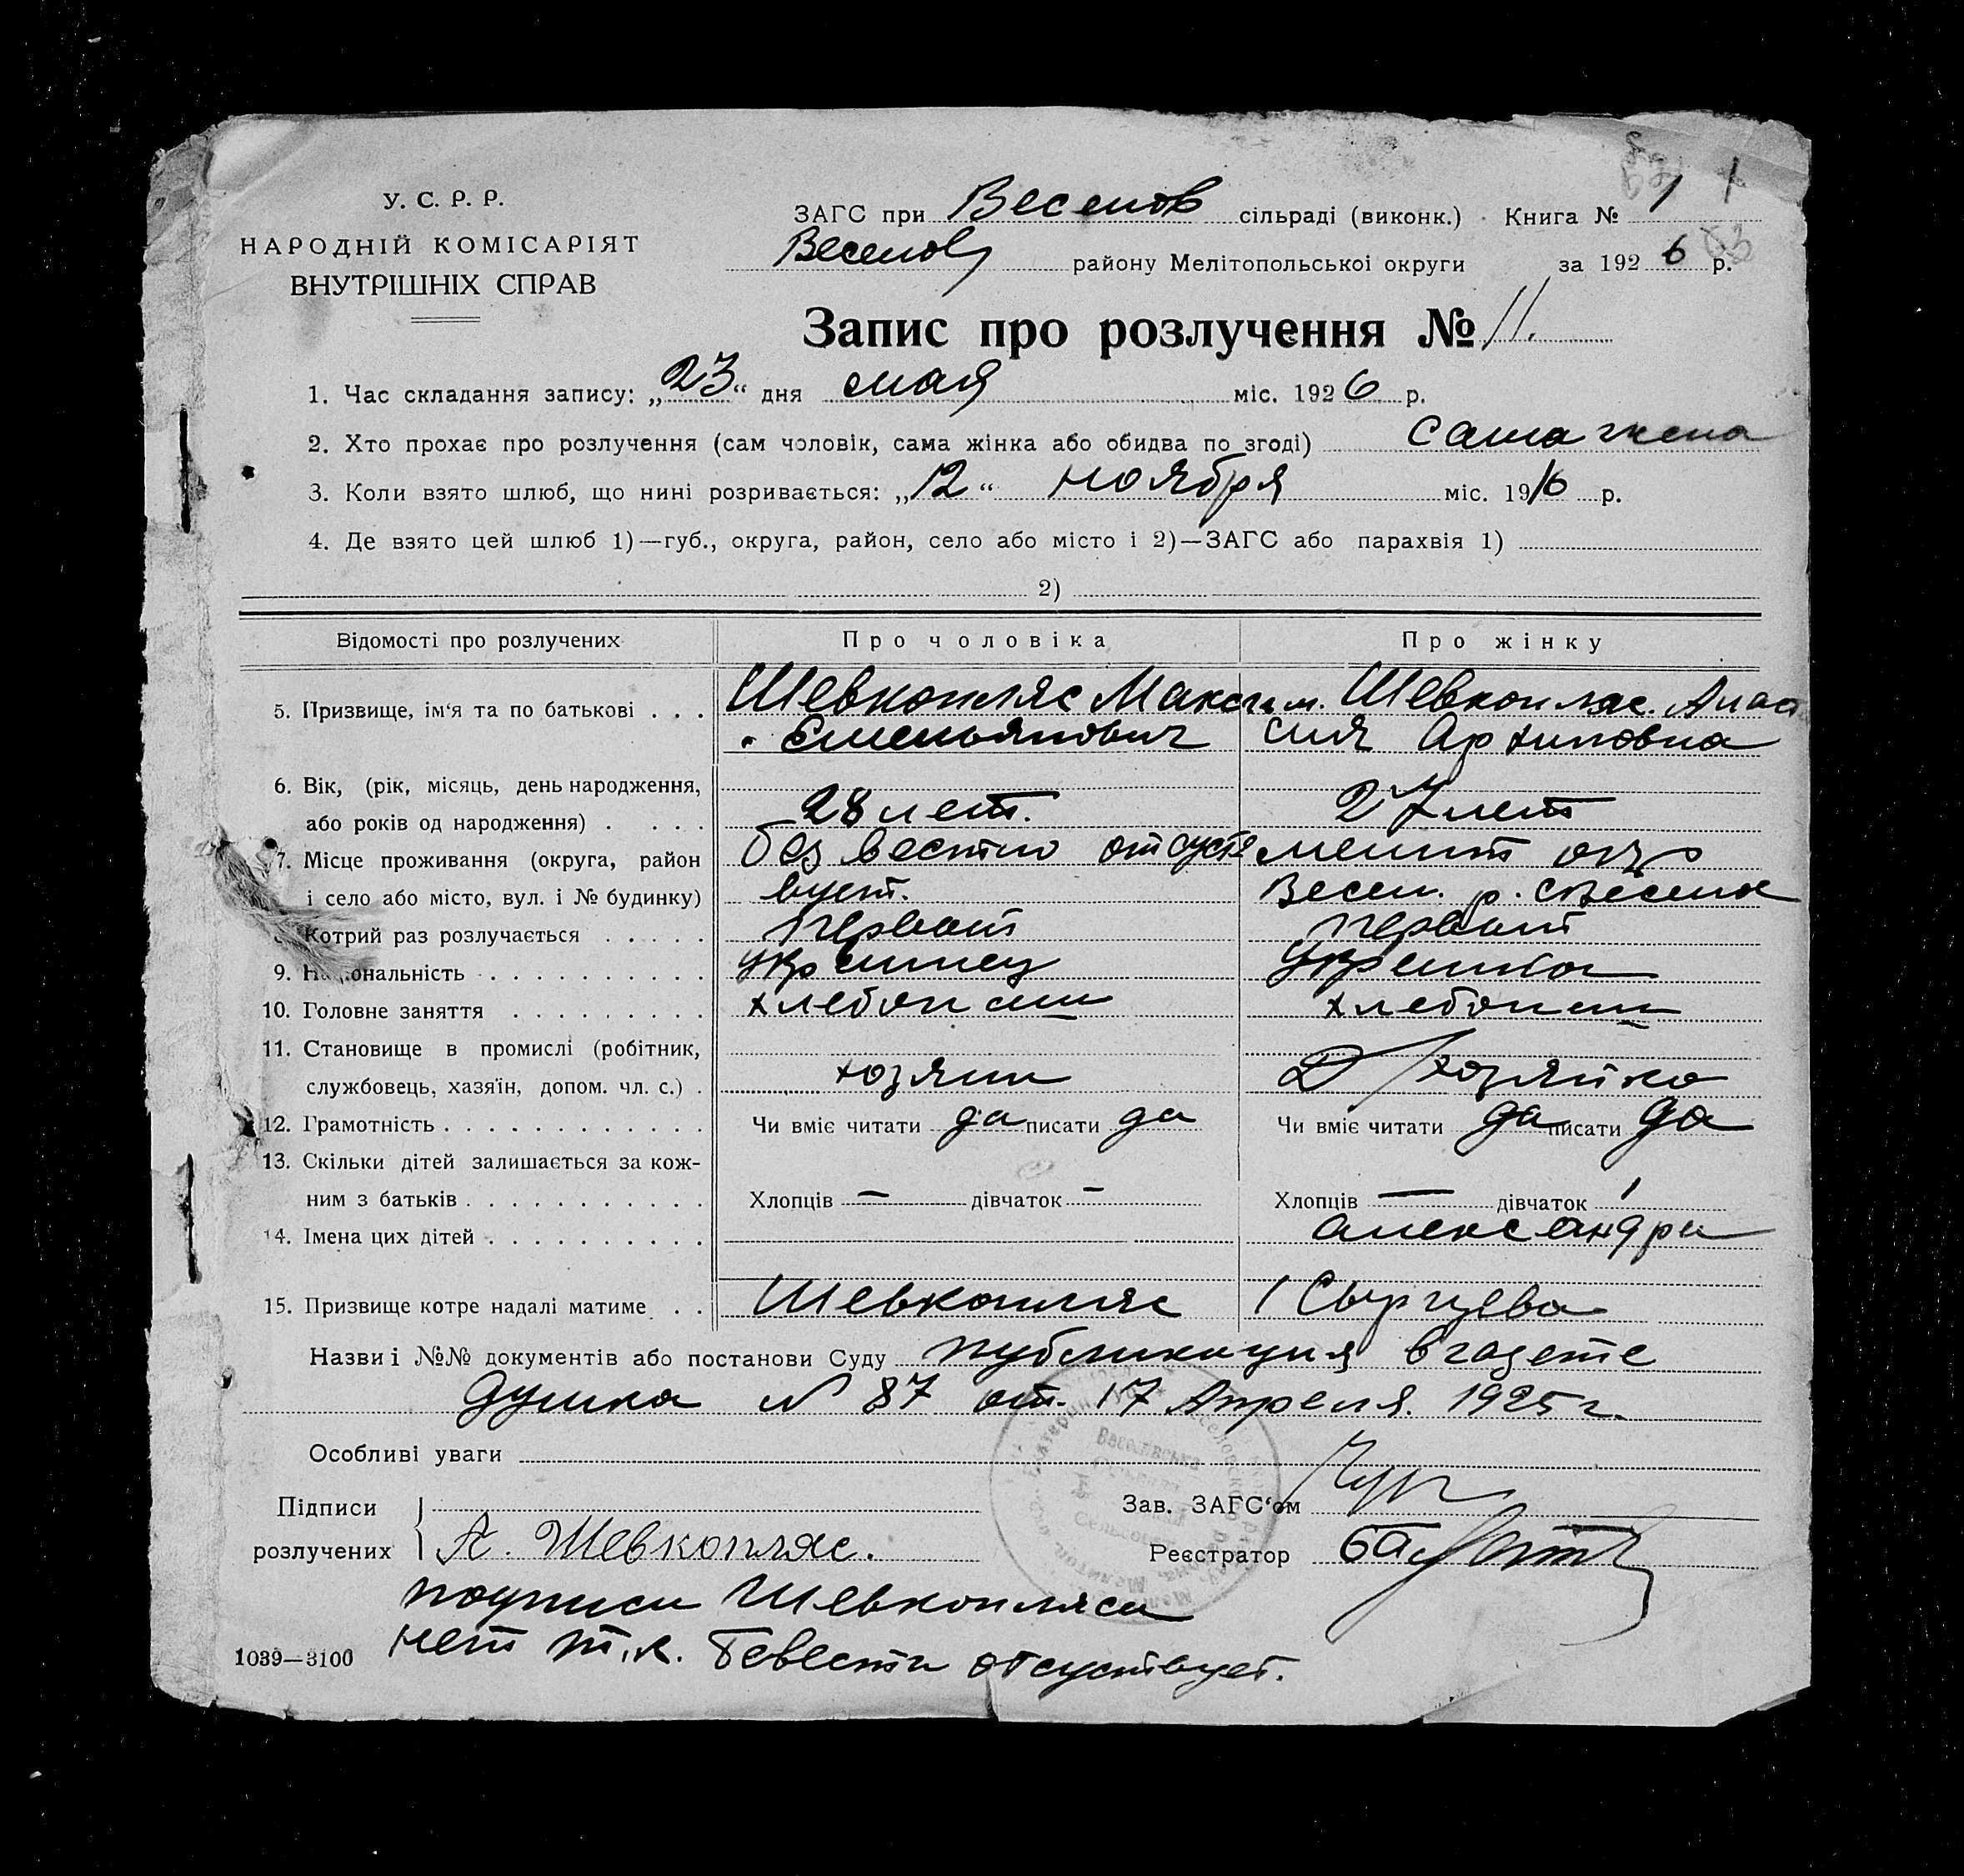 У. С. Р. Р.
НАРОДНІЙ КОМІСАРІЯТ
ВНУТРІШНІХ СПРАВ
ЗАГС при Веселов сільраді (виконк.) Книга № 1 1
Веселов району Мелітопольськоі округи за 1926 р.
Запис про розлучення № 11.
1. Час складання запису: „23“ дня мая міс. 1926 р.
2. Хто прохає про розлучення (сам чоловік, сама жінка або обидва по згоді) сама жена
3. Коли взято шлюб, що нині розривається: „12“ ноября міс. 1916 р.
4. Де взято цей шлюб 1)—губ., округа, район, село або місто і 2)—ЗАГС або парахвія 1)
2)
Відомості про розлучених Про чоловіка Про жінку
5. Призвище, ім'я та по батькові . . . Шевкопляс Максим. Шевкопляс. Анаста
Емельянович сия Архиповна
6. Вік, (рік, місяць, день народження,
або років од народження) . . . . 28 лет. 27 лет
7. Місце проживання (округа, район безвестно отсутс мелит окр
і село або місто, вул. і № будинку) вует. Весел. р. с Весела
Котрий раз розлучається . . . . . первый первый
9. Національність . . . . . . . . . . украинец украинка
10. Головне заняття . . . . . . . . . хлебопаш хлебопаш
11. Становище в промислі (робітник,
службовець, хазяїн, допом. чл. с.) . хозяин Д/хозяйка
12. Грамотність . . . . . . . . . . . . Чи вміє читати да писати да Чи вміє читати да писати да
13. Скільки дітей залишається за кож-
ним з батьків . . . . . . . . . . . Хлопців — дівчаток — Хлопців — дівчаток 1
14. Імена цих дітей . . . . . . . . . . александра
15. Призвище котре надалі матиме . . Шевкопляс Сырцева
Назви і №№ документів або постанови Суду публикация в газете
думка N 87 от. 17 Апреля. 1925 г.
Особливі уваги
Підписи Зав. ЗАГС'ом
розлучених А. Шевкопляс. Реєстратор
подписи Шевкопляса
нет т.к. бевести отсуствует.
1039—3100